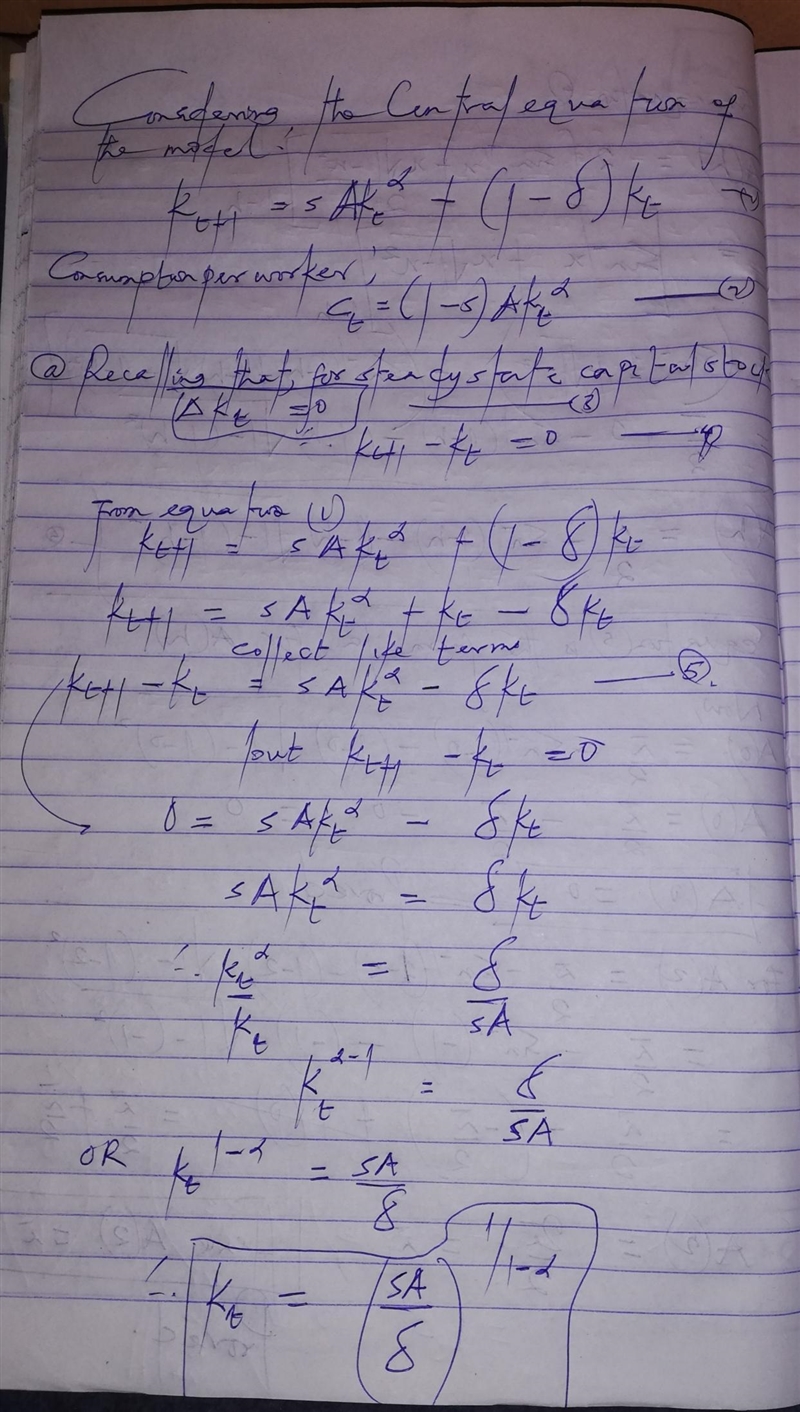 Considering the Central equation of
the model:
k_{t+1} = sAk_t^α + (1-δ)k_t
Consumption per worker;
c_t = (1-s)Ak_t^α —(2)
(a) Recalling that, for steady state capital stock
Δk_t = 0 —(3)
∴ k_{t+1} - k_t = 0
From equation (1)
k_{t+1} = sAk_t^α + (1-δ)k_t
k_{t+1} = sAk_t^α + k_t - δk_t
collect like terms
k_{t+1} - k_t = sAk_t^α - δk_t —(5).
but k_{t+1} - k_t = 0
0 = sAk_t^α - δk_t
sAk_t^α = δk_t
∴ k_t^α/k_t = δ/sA
k_t^{α-1} = δ/sA
OR k_t^{1-α} = sA/δ
∴ k_t = (sA/δ)^{1/1-α}